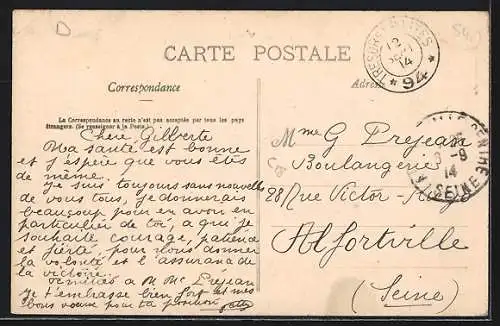 CARTE POSTALE
Correspondance
La Correspondance au recto n'est pas acceptée par tous les pays
étrangers. (Se renseigner à la Poste.)
Chère Gilberte
Ma santé est bonne
et j'espère que vous êtes
de même.
Je suis toujours sans nouvelles
de vous tous, je donnerais
beaucoup pour en avoir en
particulier de toi, a qui je
souhaite courage, patience
et fierté, pour nous donner
la volonté et l'assurance
de la victoire.
amitiés a M Me Préjean
Je t'embrasse bien fort et mes
pour ta position
Adresse
Mme G Prejean
Boulangerie
28 Rue Victor
Alfortville
(Seine)
TRESOR ET POSTES
* 94 *
14
SEINE
14